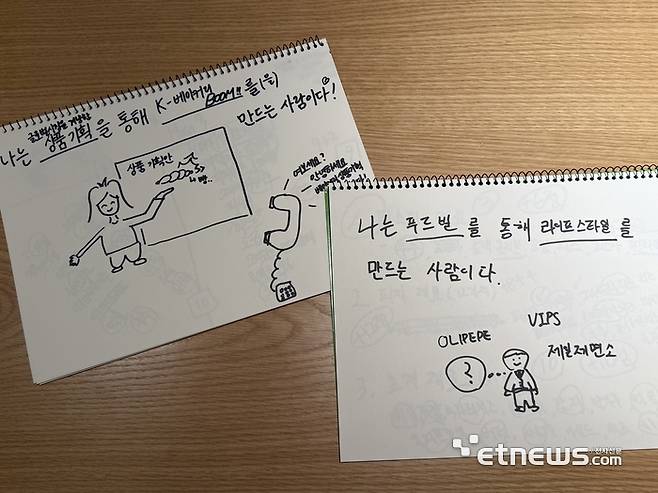 나는 상품기획을 통해 K-베이커리 BOOM!! 를(을)
만드는 사람이다!
상품 기획안
여보세요?
안녕하세요
나는 푸드빌 를 통해 라이프스타일를
만드는 사람이다.
OLIPEPE
VIPS
제일제면소
?
전자신문
etnews.com